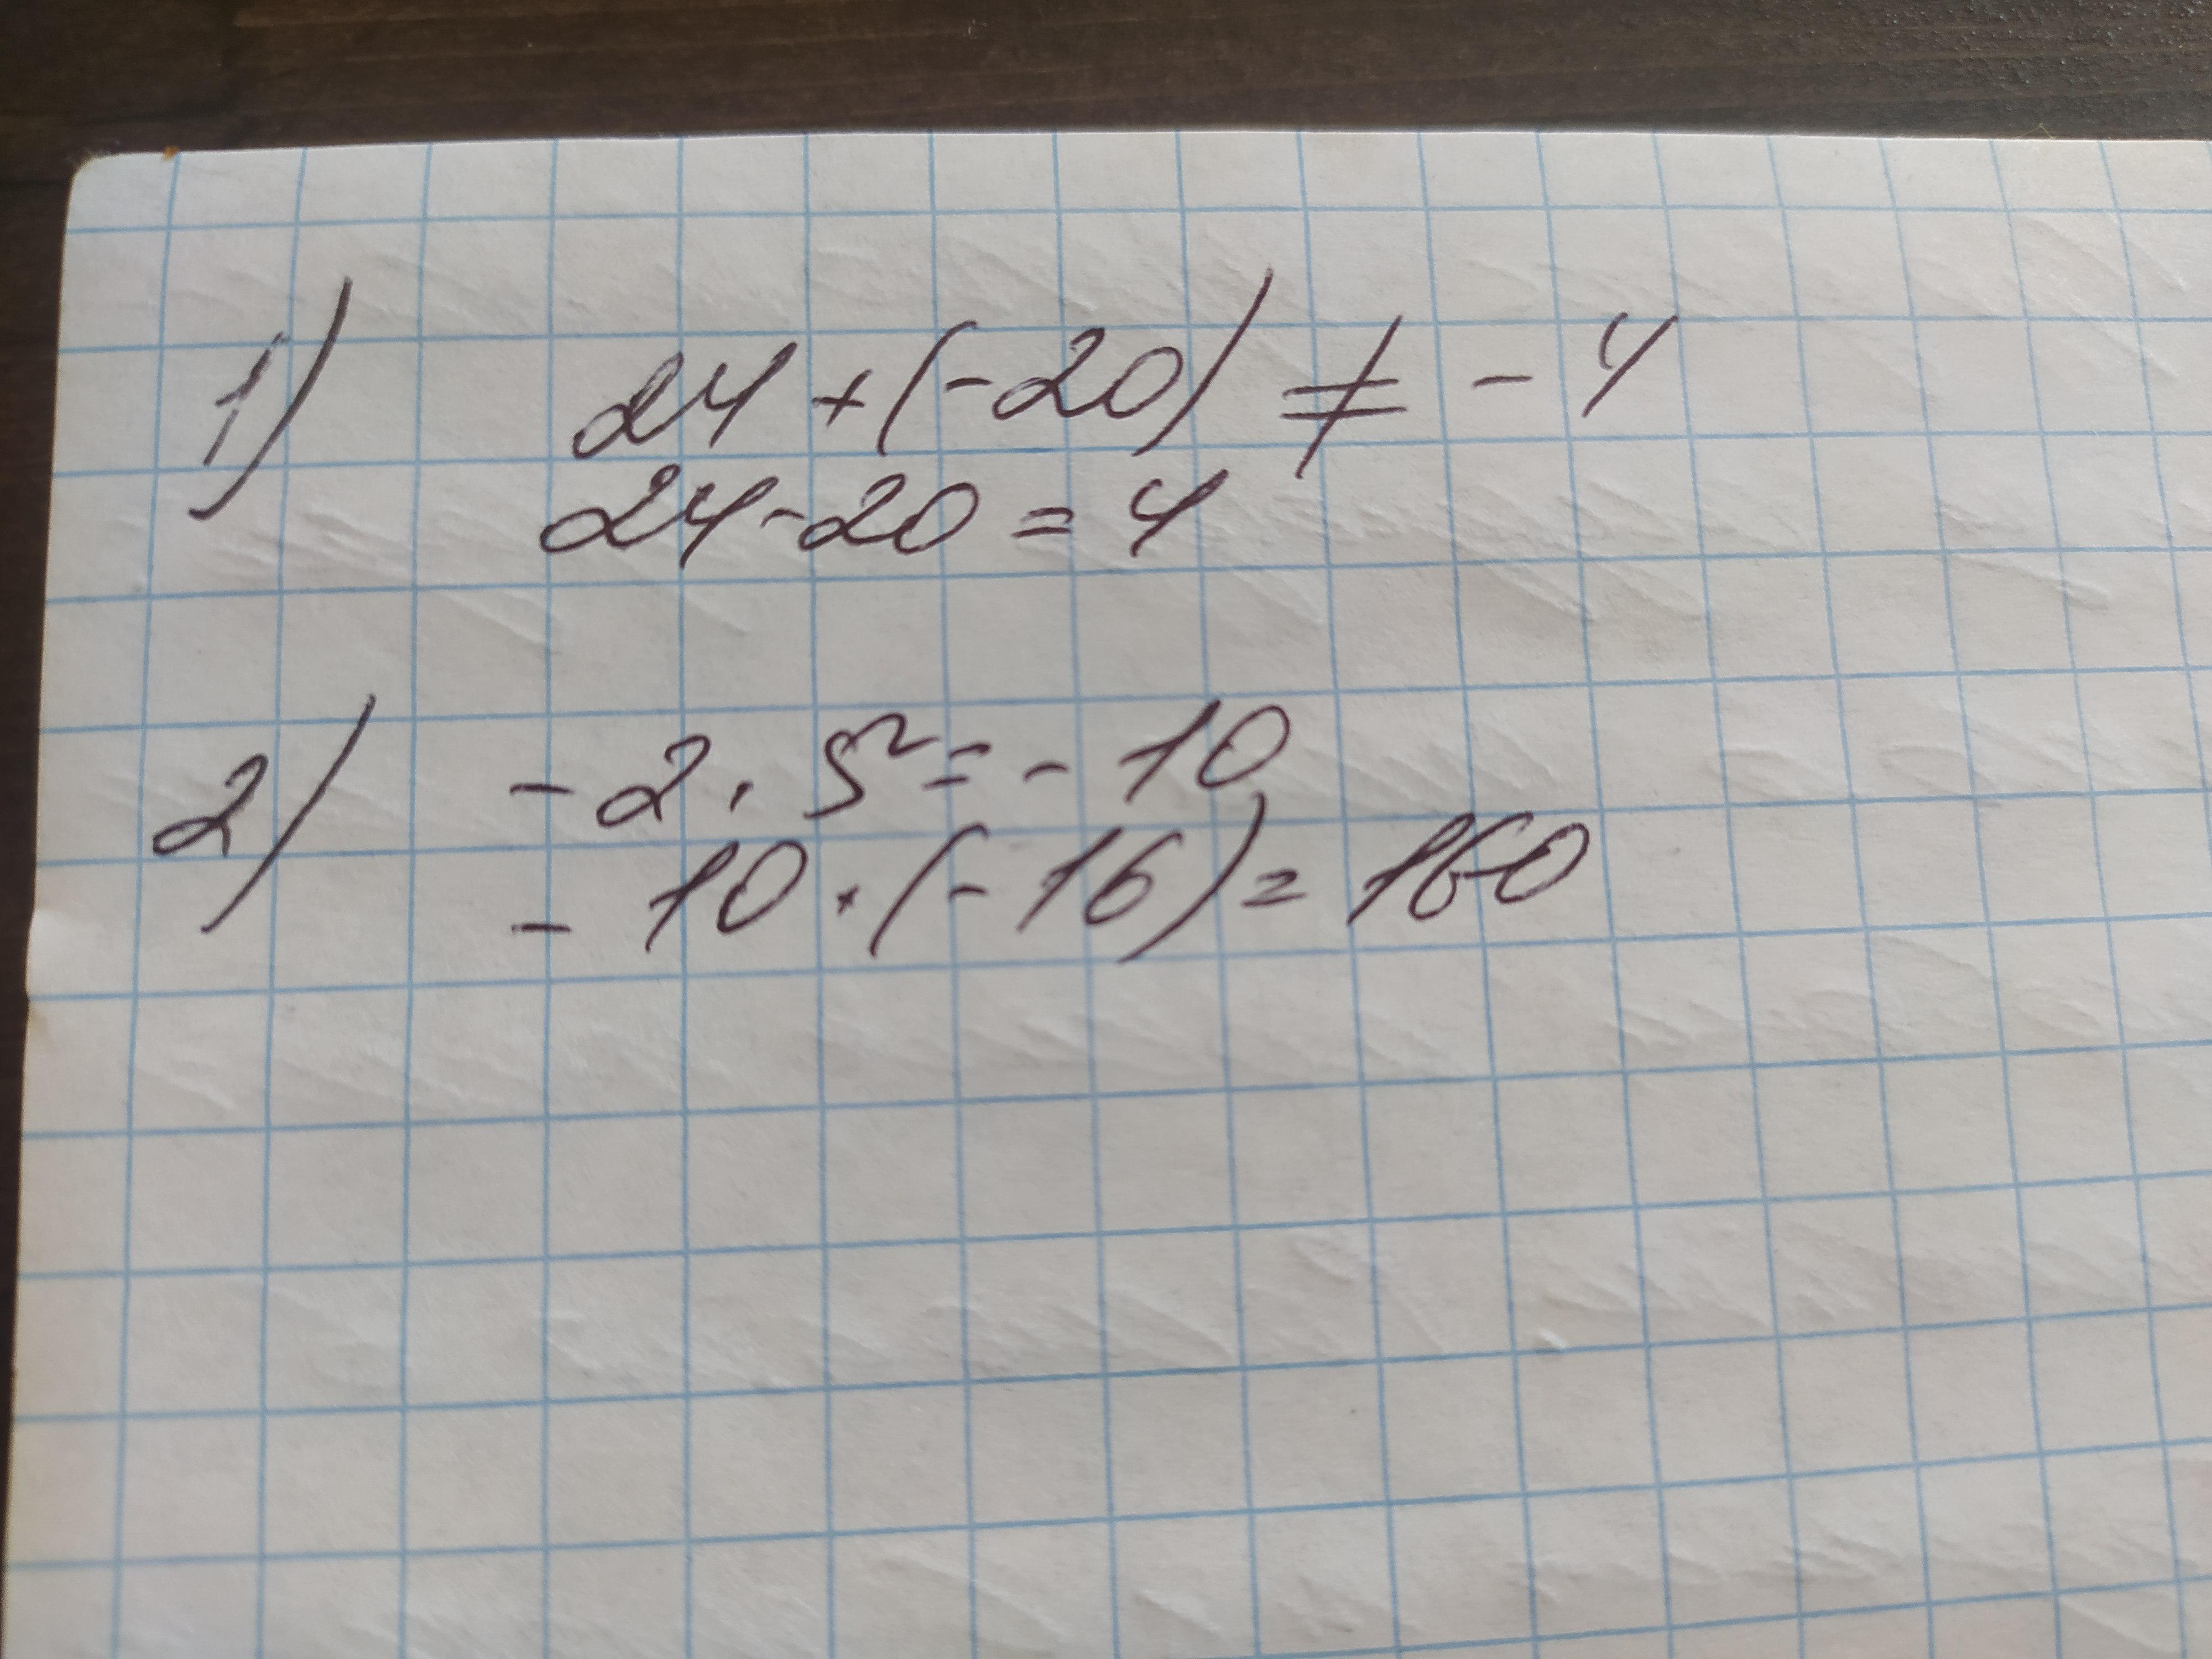 1) 24 + (-20) ≠ - 4
24 - 20 = 4
2) - 2 . 5² = - 10
- 10 . (- 16) = 160